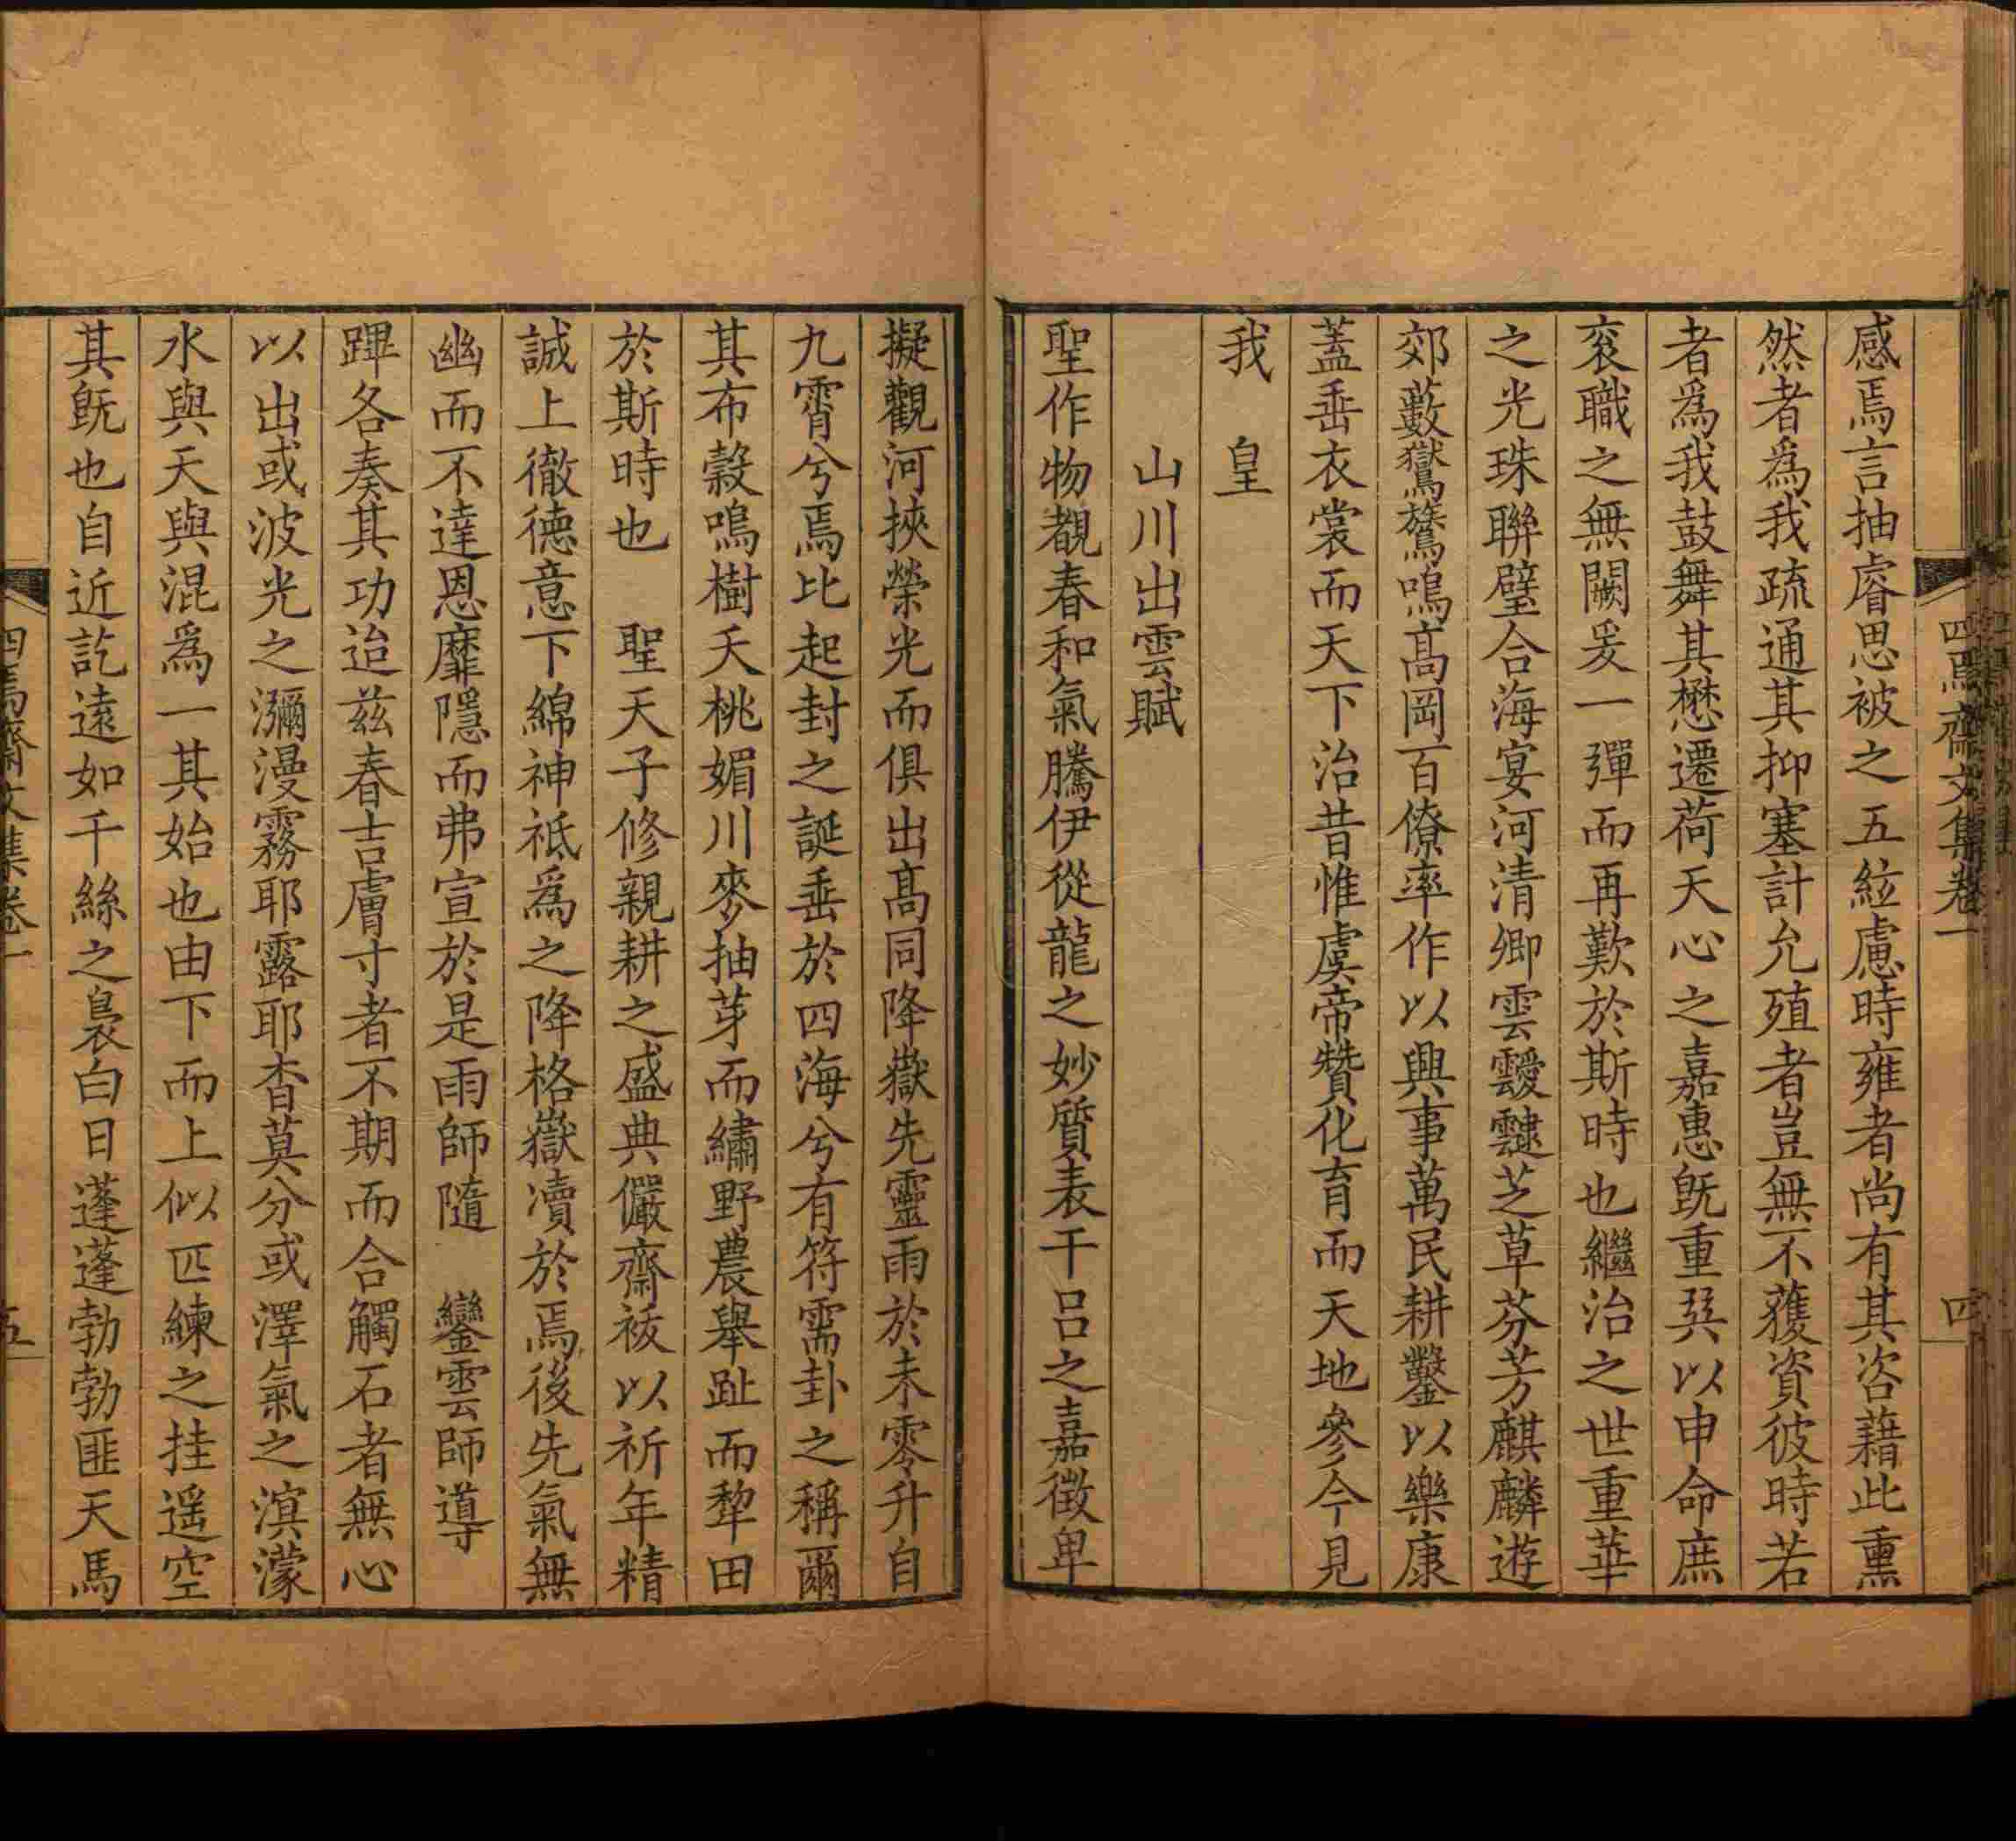 四焉齋文集卷一 四
感焉言抽睿思被之 五絃慮時雍者尚有其咨藉此熏
然者爲我疏通其抑塞計允殖者豈無不蒦資彼時若
者爲我鼓舞其懋遷荷天心之嘉惠旣重巽以申命庶
袞職之無闕爰一彈而再歎於斯時也繼治之世重華
之光珠聯璧合海宴河清卿雲靉靆芝草芬芳麒麟遊
郊藪鸑鷟鳴高岡百僚率作以興事萬民耕鑿以樂康
蓋垂衣裳而天下治昔惟虞帝贊化育而天地參今見
我 皇
山川出雲賦
聖作物覩春和氣騰伊從龍之妙質表干呂之嘉徵卑
擬觀河挾榮光而俱出高同降嶽先靈雨於未零升自
九霄兮焉比起封之誕垂於四海兮有符需卦之稱爾
其布穀鳴樹夭桃媚川麥抽芽而繡野農舉趾而犂田
於斯時也 聖天子修親耕之盛典儼齋祓以祈年精
誠上徹德意下綿神祗爲之降格嶽瀆於焉後先氣無
幽而不達恩靡隱而弗宣於是雨師隨 鑾雲師導
蹕各奏其功迨茲春吉膚寸者不期而合觸石者無心
以出或波光之瀰漫霧耶露耶杳莫分或澤氣之溟濛
水與天與混爲一其始也由下而上似匹練之挂遥空
其旣也自近訖遠如千絲之裊白日蓬蓬勃勃匪天馬
四焉齋文集卷一 五